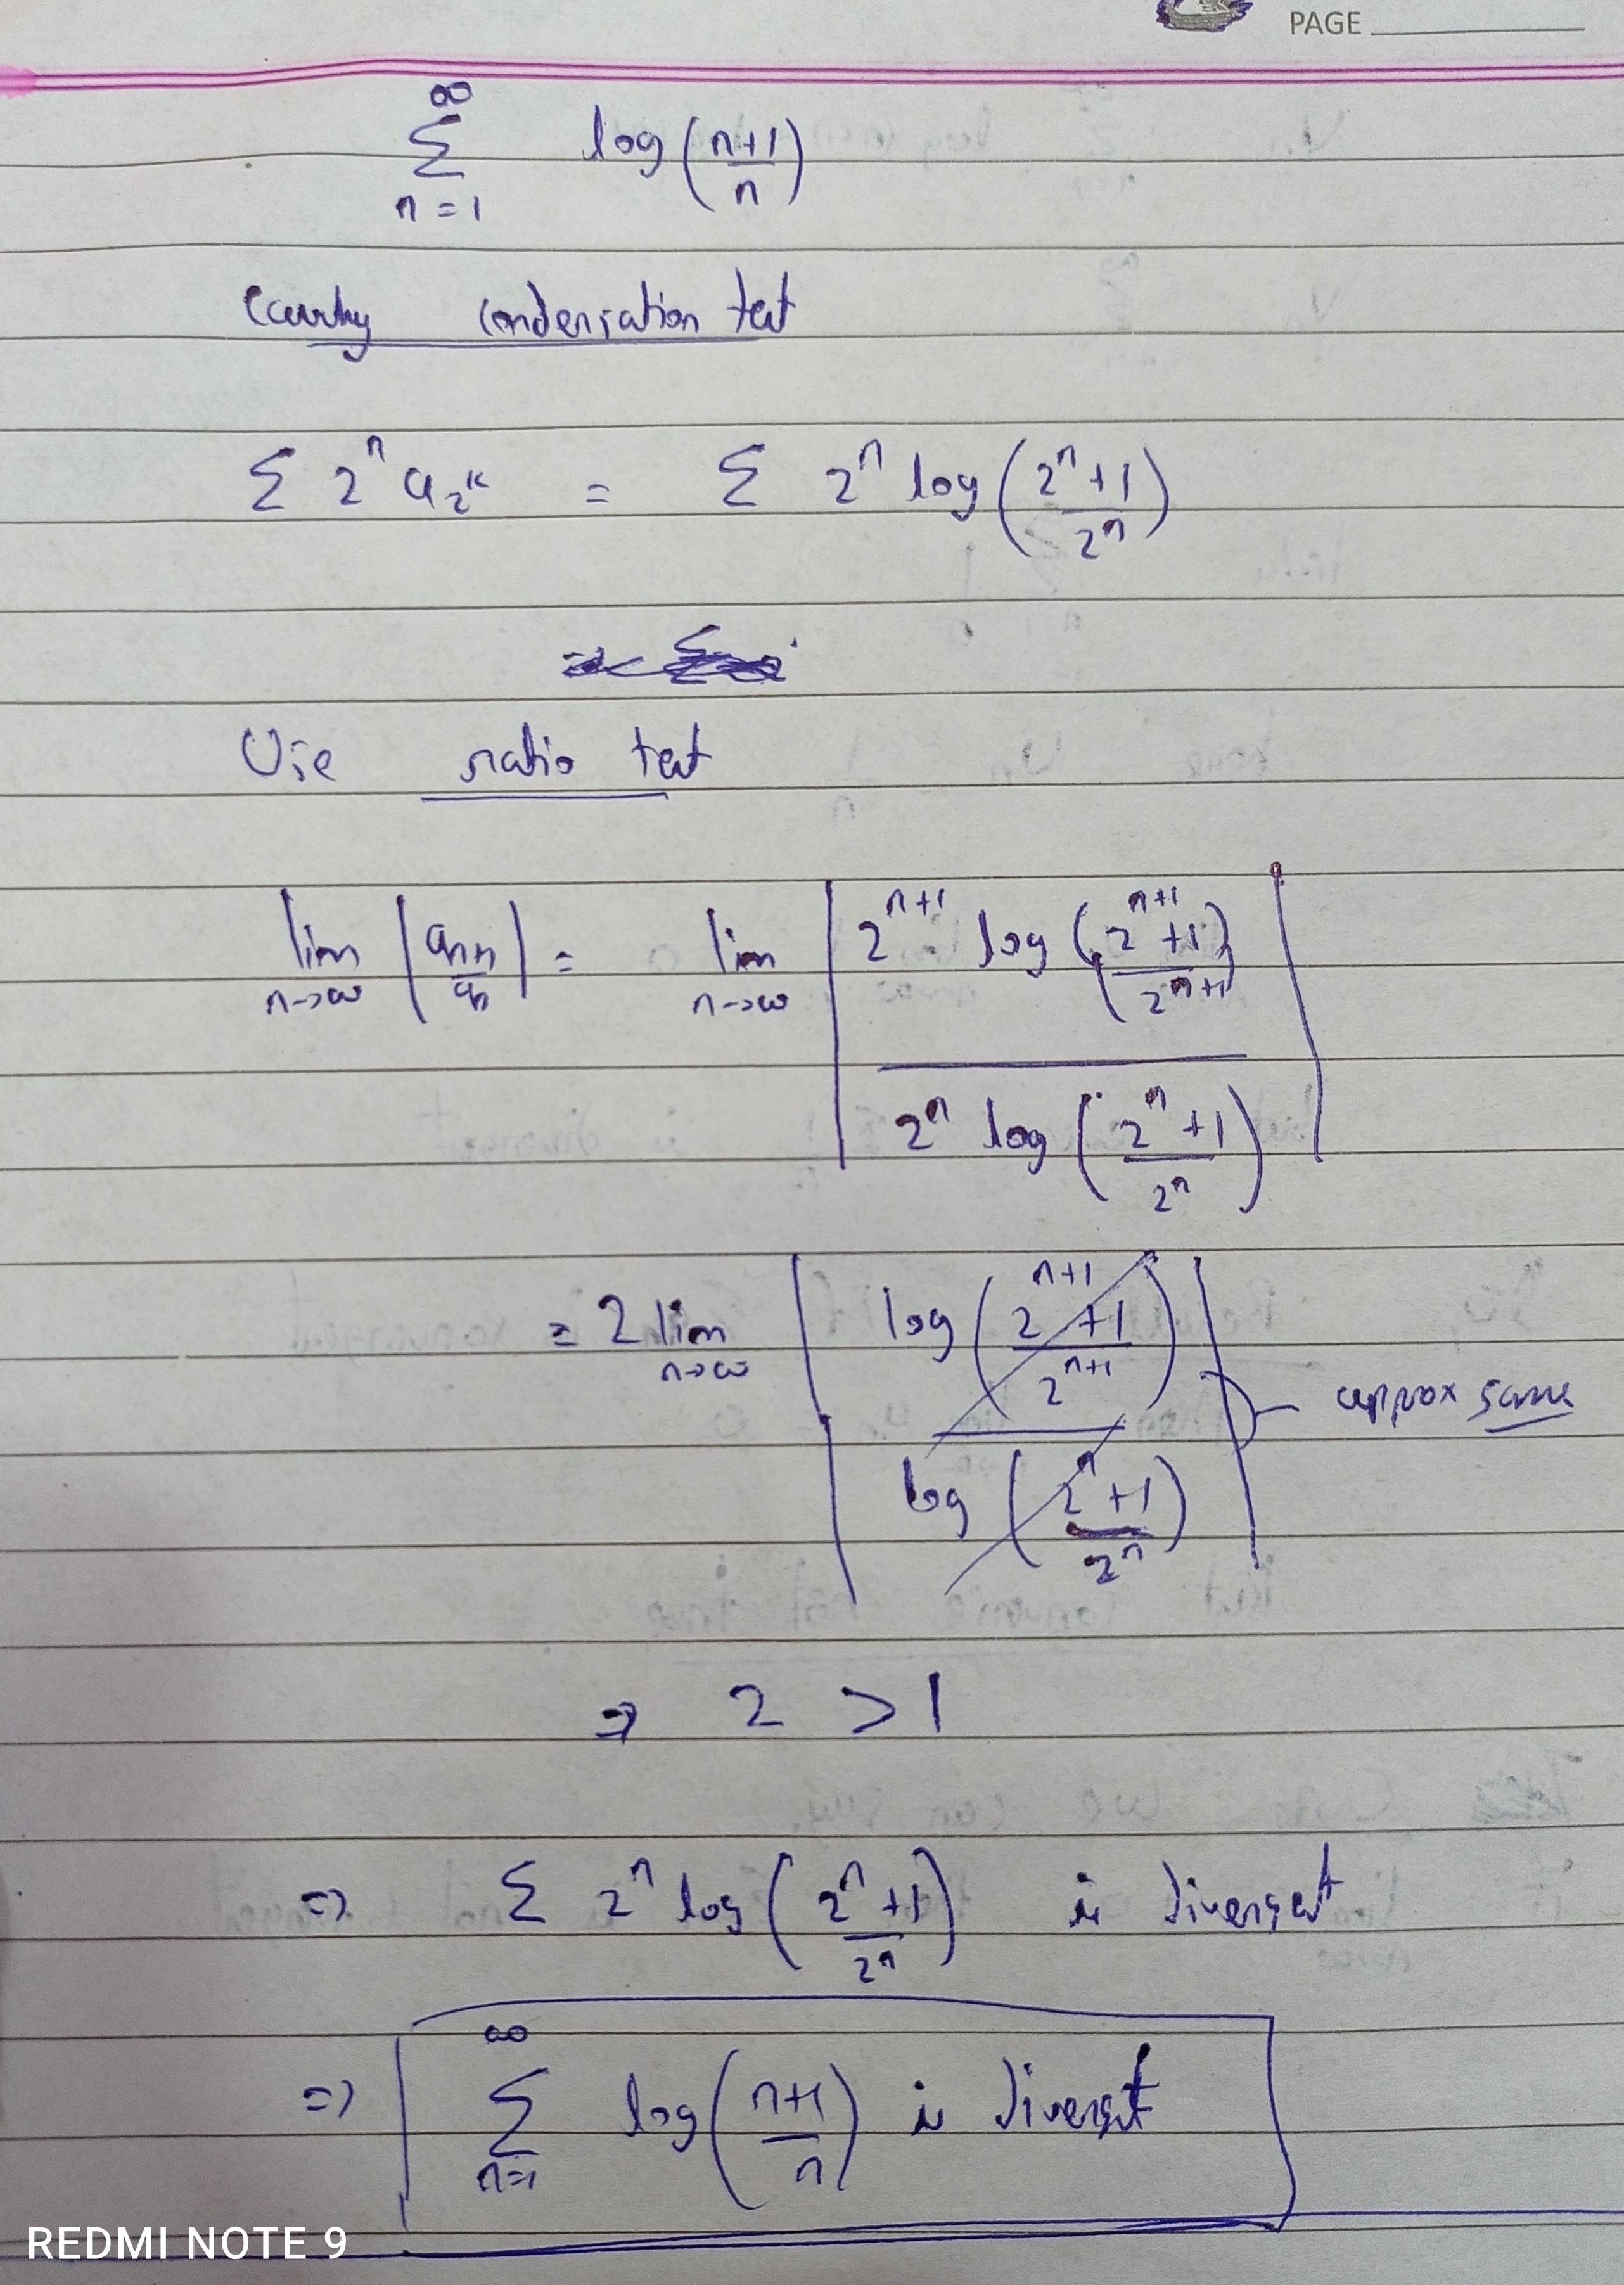 PAGE
∞
Σ log(n+1/n)
n=1
condensation test
Σ 2^n a_2^k = Σ 2^n log(2^n+1/2^n)
Use ratio test
lim n→∞ |a_n+1/a_n| = lim n→∞ |2^n+1 log(2^n+1 +1/2^n+1) / 2^n log(2^n+1/2^n)|
= 2 lim n→∞ |log(2^n+1 +1/2^n+1) / log(2^n+1/2^n)| approx same
⇒ 2 > 1
⇒ Σ 2^n log(2^n+1/2^n) is divergent
∞
⇒ Σ log(n+1/n) is divergent
n=1
REDMI NOTE 9